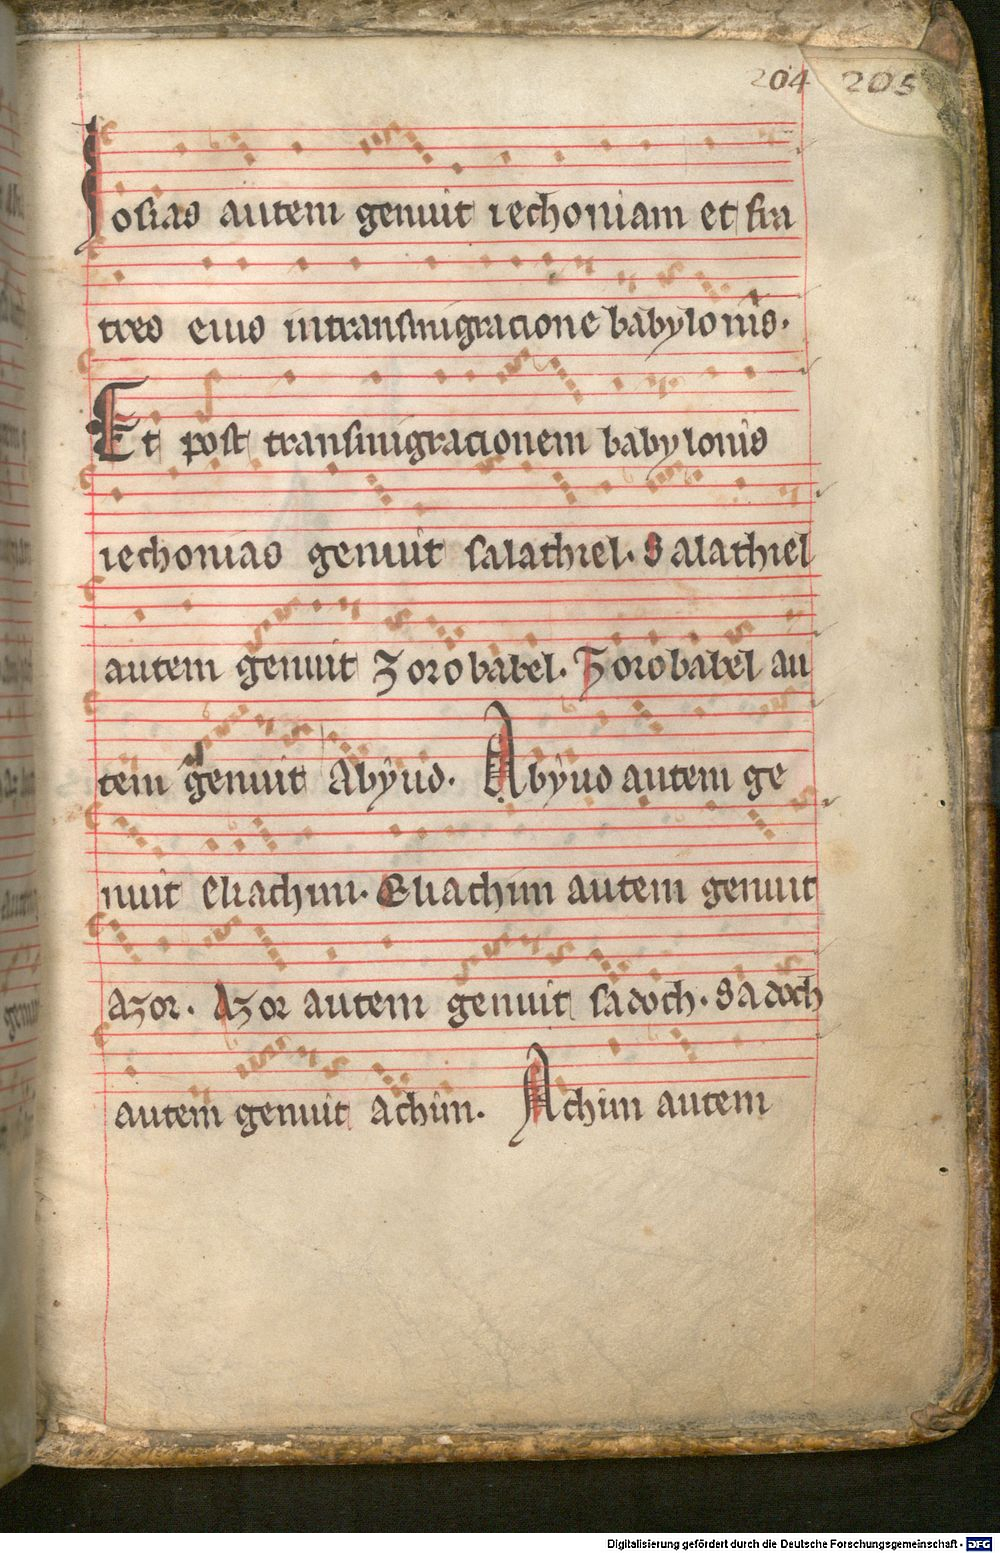 204 205
Iosias autem genuit iechoniam et fra
tres eius intransmigracione babylonis.
Et post transmigracionem babylonis
iechonias genuit salathiel. Salathiel
autem genuit Zorobabel. Zorobabel au
tem genuit Abyud. Abyud autem ge
nuit eliachim. Eliachim autem genuit
Azor. Azor autem genuit sadoch. Sadoch
autem genuit achim. Achim autem
Digitalisierung gefördert durch die Deutsche Forschungsgemeinschaft - DFG